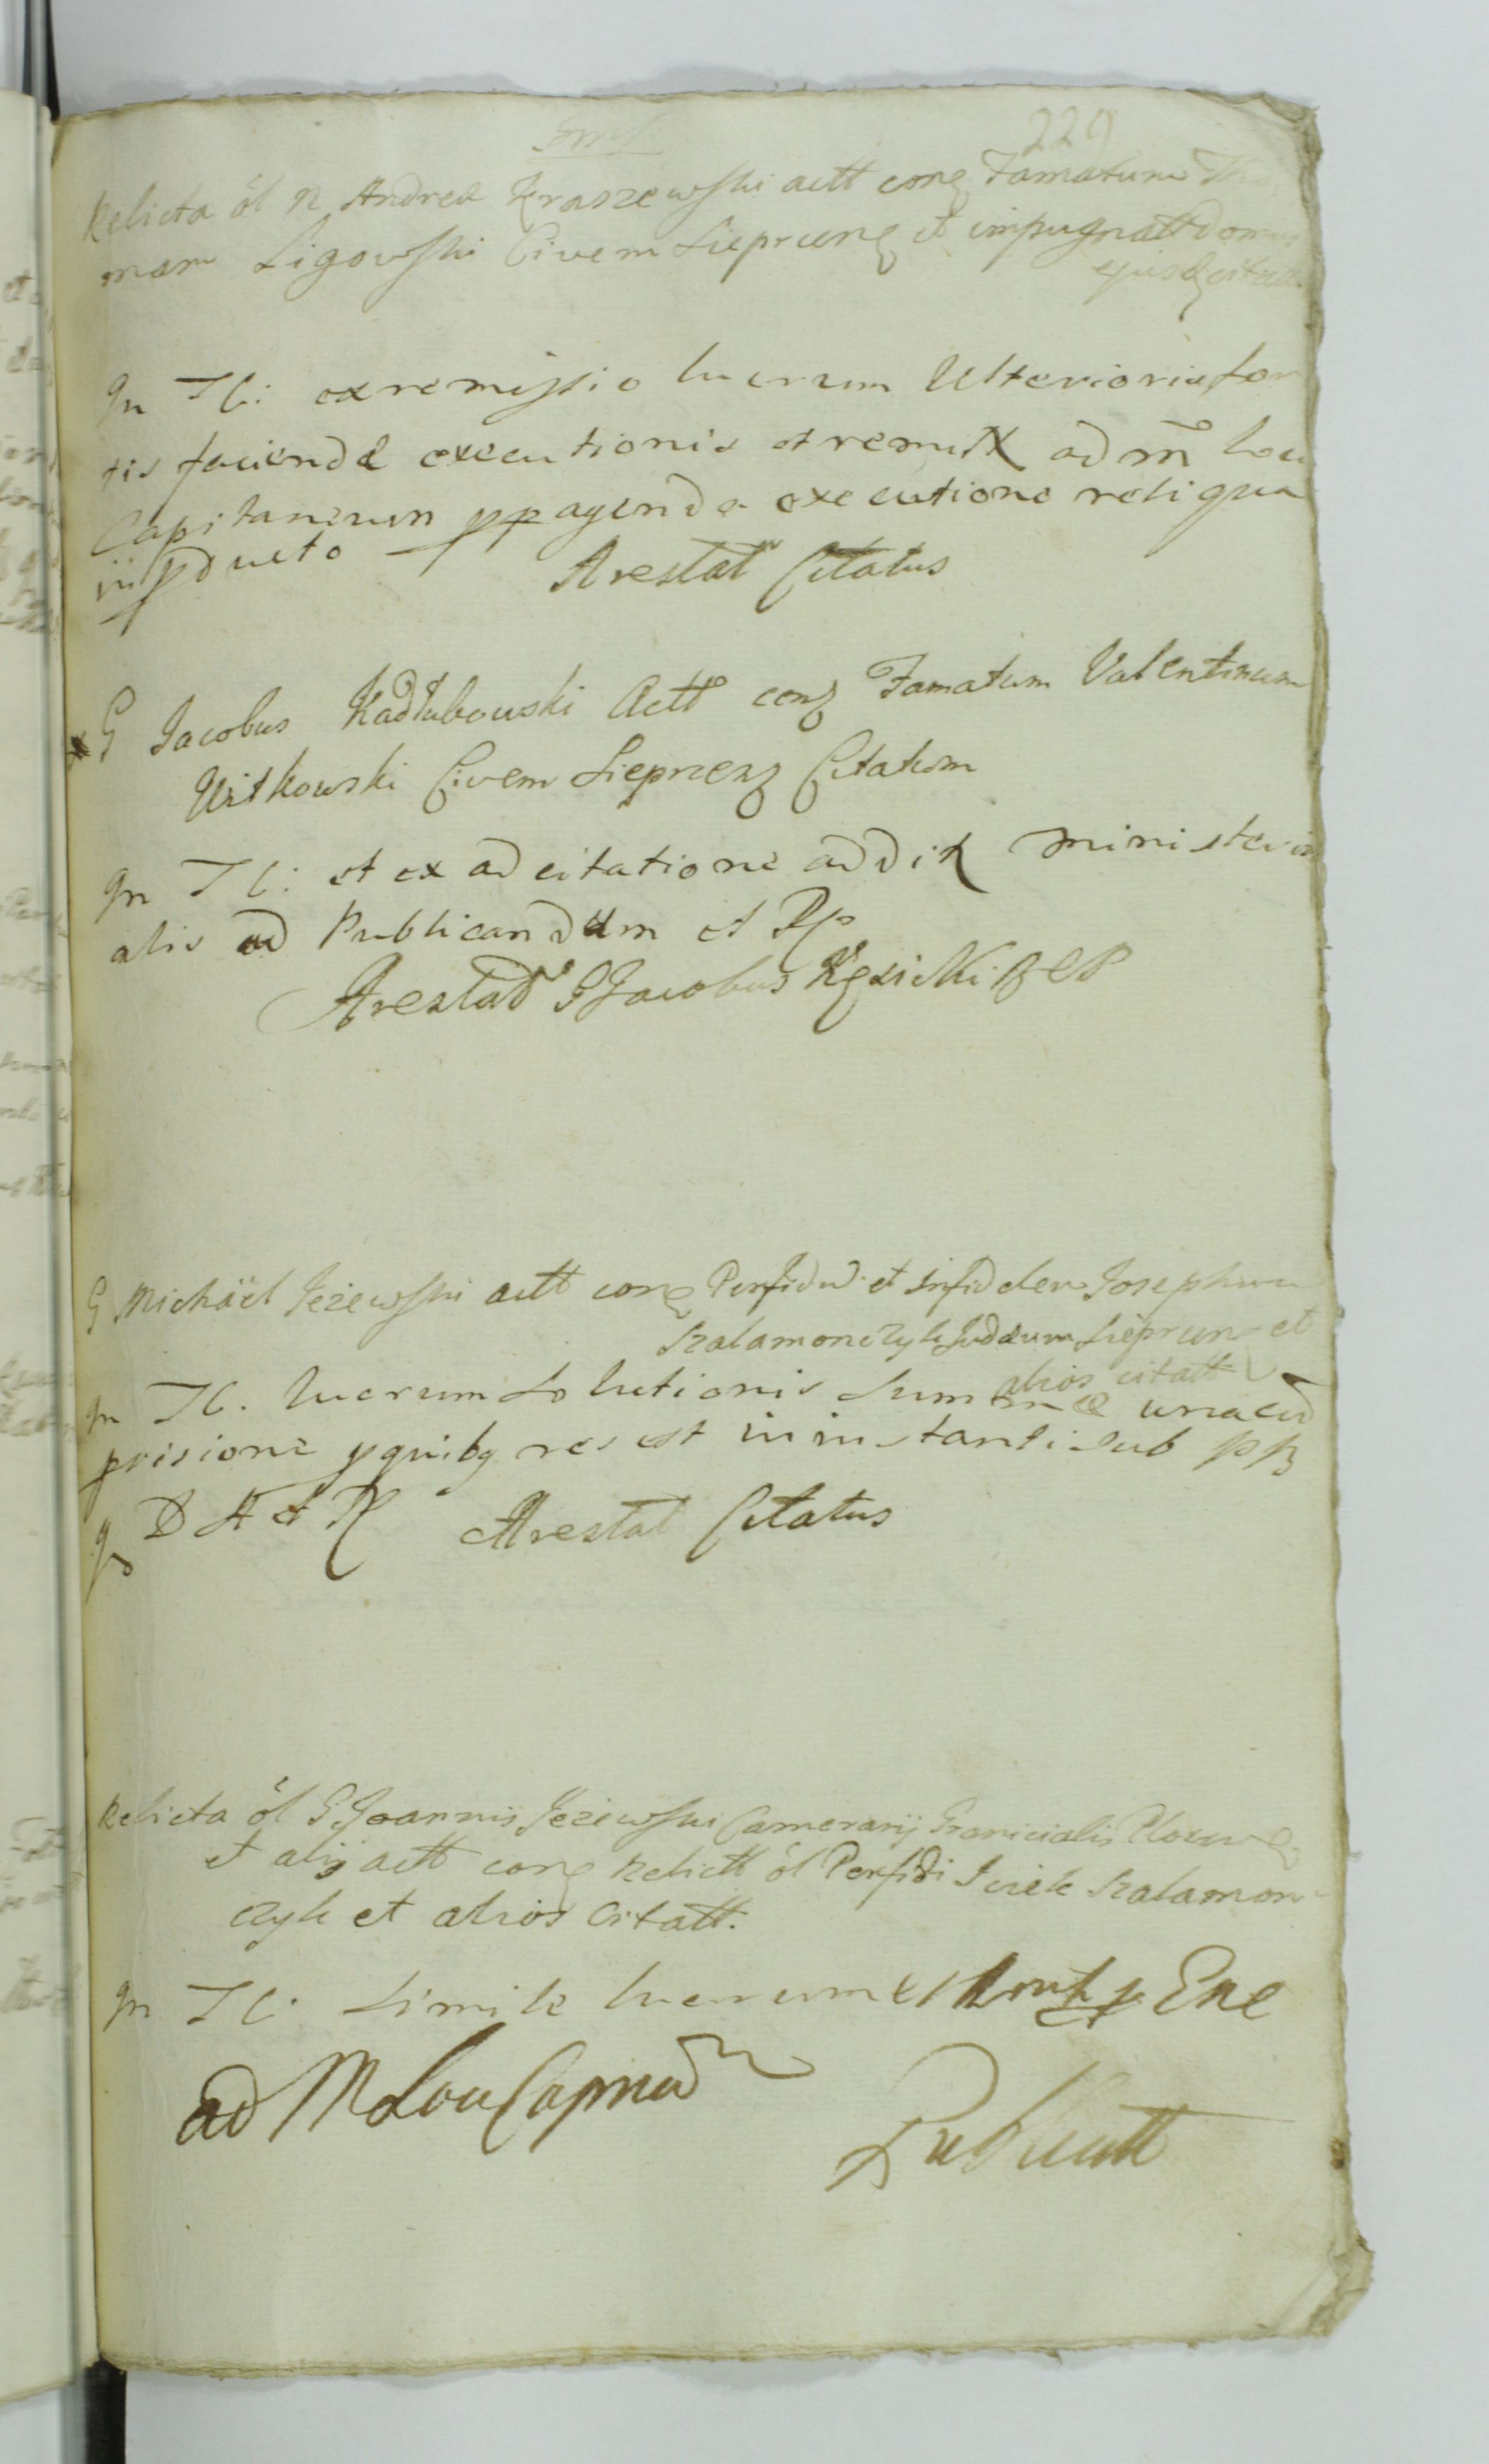 229
Relicta ol N Andreæ Kraszewski actt conq Famatum Tho
mam Ligowski Civem Sieprcenq et impugnatt domus
ejusdq citatt
In TC: ex remissio lucrum Ulterioris for
tis faciendæ executionis et remitt ad M Loci
Capitaneum pp agenda executione reliqua
in pducto Arestat Citatus
G Jacobus Kadłubowski Actt conq Famatum Valentinum
Witkowski Civem Sieprcenq Citatum
In TC: et ex adcitatione addit ministeri
alis ad Publicandum et Rp
Arestat G Jacobus Kęsicki BCP
G Michaël Jeżewski actt conq Perfidu et infidelem Josephum
Szalamonczyk Judæum Sieprcen et
alios citatt
In TC. lucrum solutionis summæ unacu
poisione pquibq res est in instanti sub pp
q D A et R Arestat Citatus
Relicta ol G Joannis Jeżewski Camerarij Granicialis Plocenq
et alij actt conq Relictt ol Perfidi Icick Szalamon
czyk et alios citatt.
In TC. Simile lucrum et Exe
ad M Loci Capneu
Publicatt